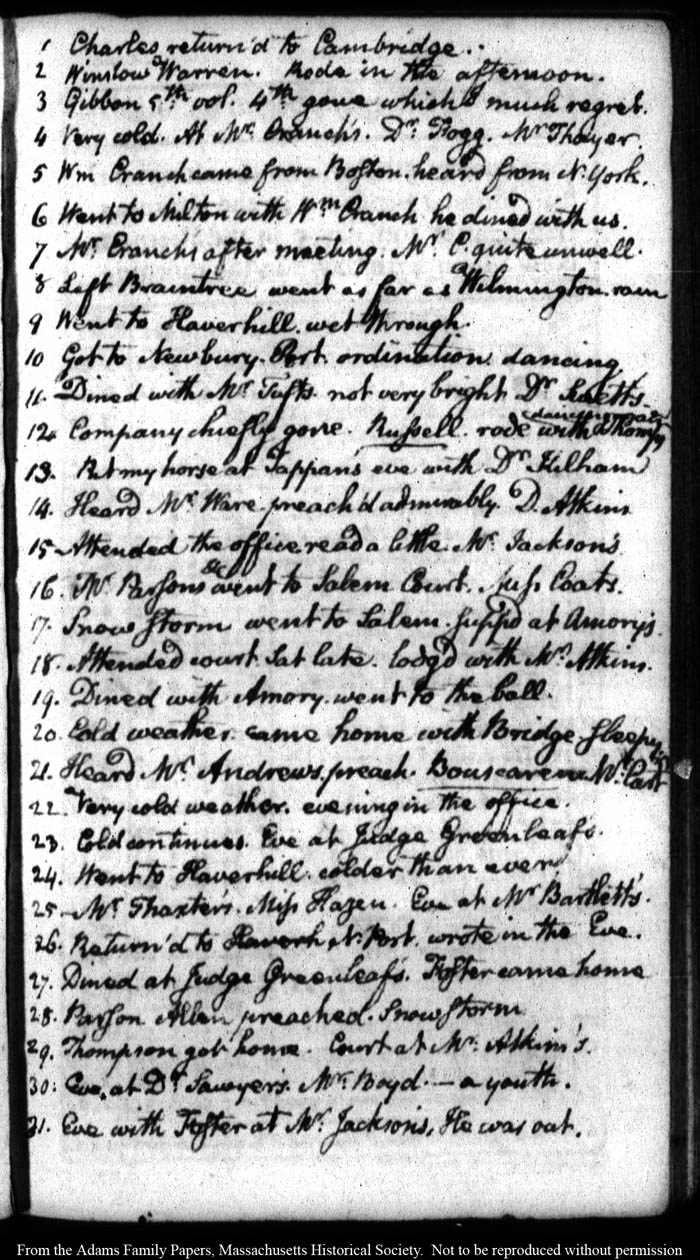 1 Charles return'd to Cambridge.
2 Winslow Warren. Rode in the afternoon.
3 Gibbon 5th vol. 4th gone which I much regret.
4 Very cold. At Mr. Cranch's. Dr. Fogg. Mr Thayer.
5 Wm Cranch came from Boston. heard from N. York.
6 Went to Milton with Wm Cranch he dined with us.
7 Mr. Cranch's after meeting. Mr. C. quite unwell.
8 Left Braintree went as far as Wilmington. rain
9 Went to Haverhill. wet through.
10 Got to Newbury-Port. ordination. dancing
11. Dined with Mr. Tufts. not very bright Dr
12. Company chiefly gone. Russell. rode with Thompson
13. Put my horse at Tappan's eve with Dr Kilham
14. Heard Mr. Ware preach'd admirably. D. Atkins
15. Attended the office. read a little. Mr. Jackson's
16. Mr. Parsons &c went to Salem Court. Miss Coats.
17. Snow storm went to Salem. supp'd at Amory's.
18. Attended court. Sat late. lodg'd with Mrs. Atkins.
19. Dined with Amory. went to the ball.
20. Cold weather. came home with Bridge sleepy
21. Heard Mr. Andrews, preach. Bouscaren Mr. Cart
22. Very cold weather. evening in the office.
23. Cold continues. Eve at Judge Greenleaf's.
24. Went to Haverhill. colder than ever
25. Mr. Thaxter's. Miss Hazen. Eve at Mr Bartlett's.
26. Return'd to N. Port. wrote in the Eve.
27. Dined at Judge Greenleaf's. Foster came home
28. Parson Allen preached. Snow storm
29. Thompson got home. Court at Mrs. Atkins's.
30. Eve. at Dr. Sawyer's. Mr. Boyd. — a youth.
31. Eve with Foster at Mr. Jackson's, He was out.
From the Adams Family Papers, Massachusetts Historical Society. Not to be reproduced without permission